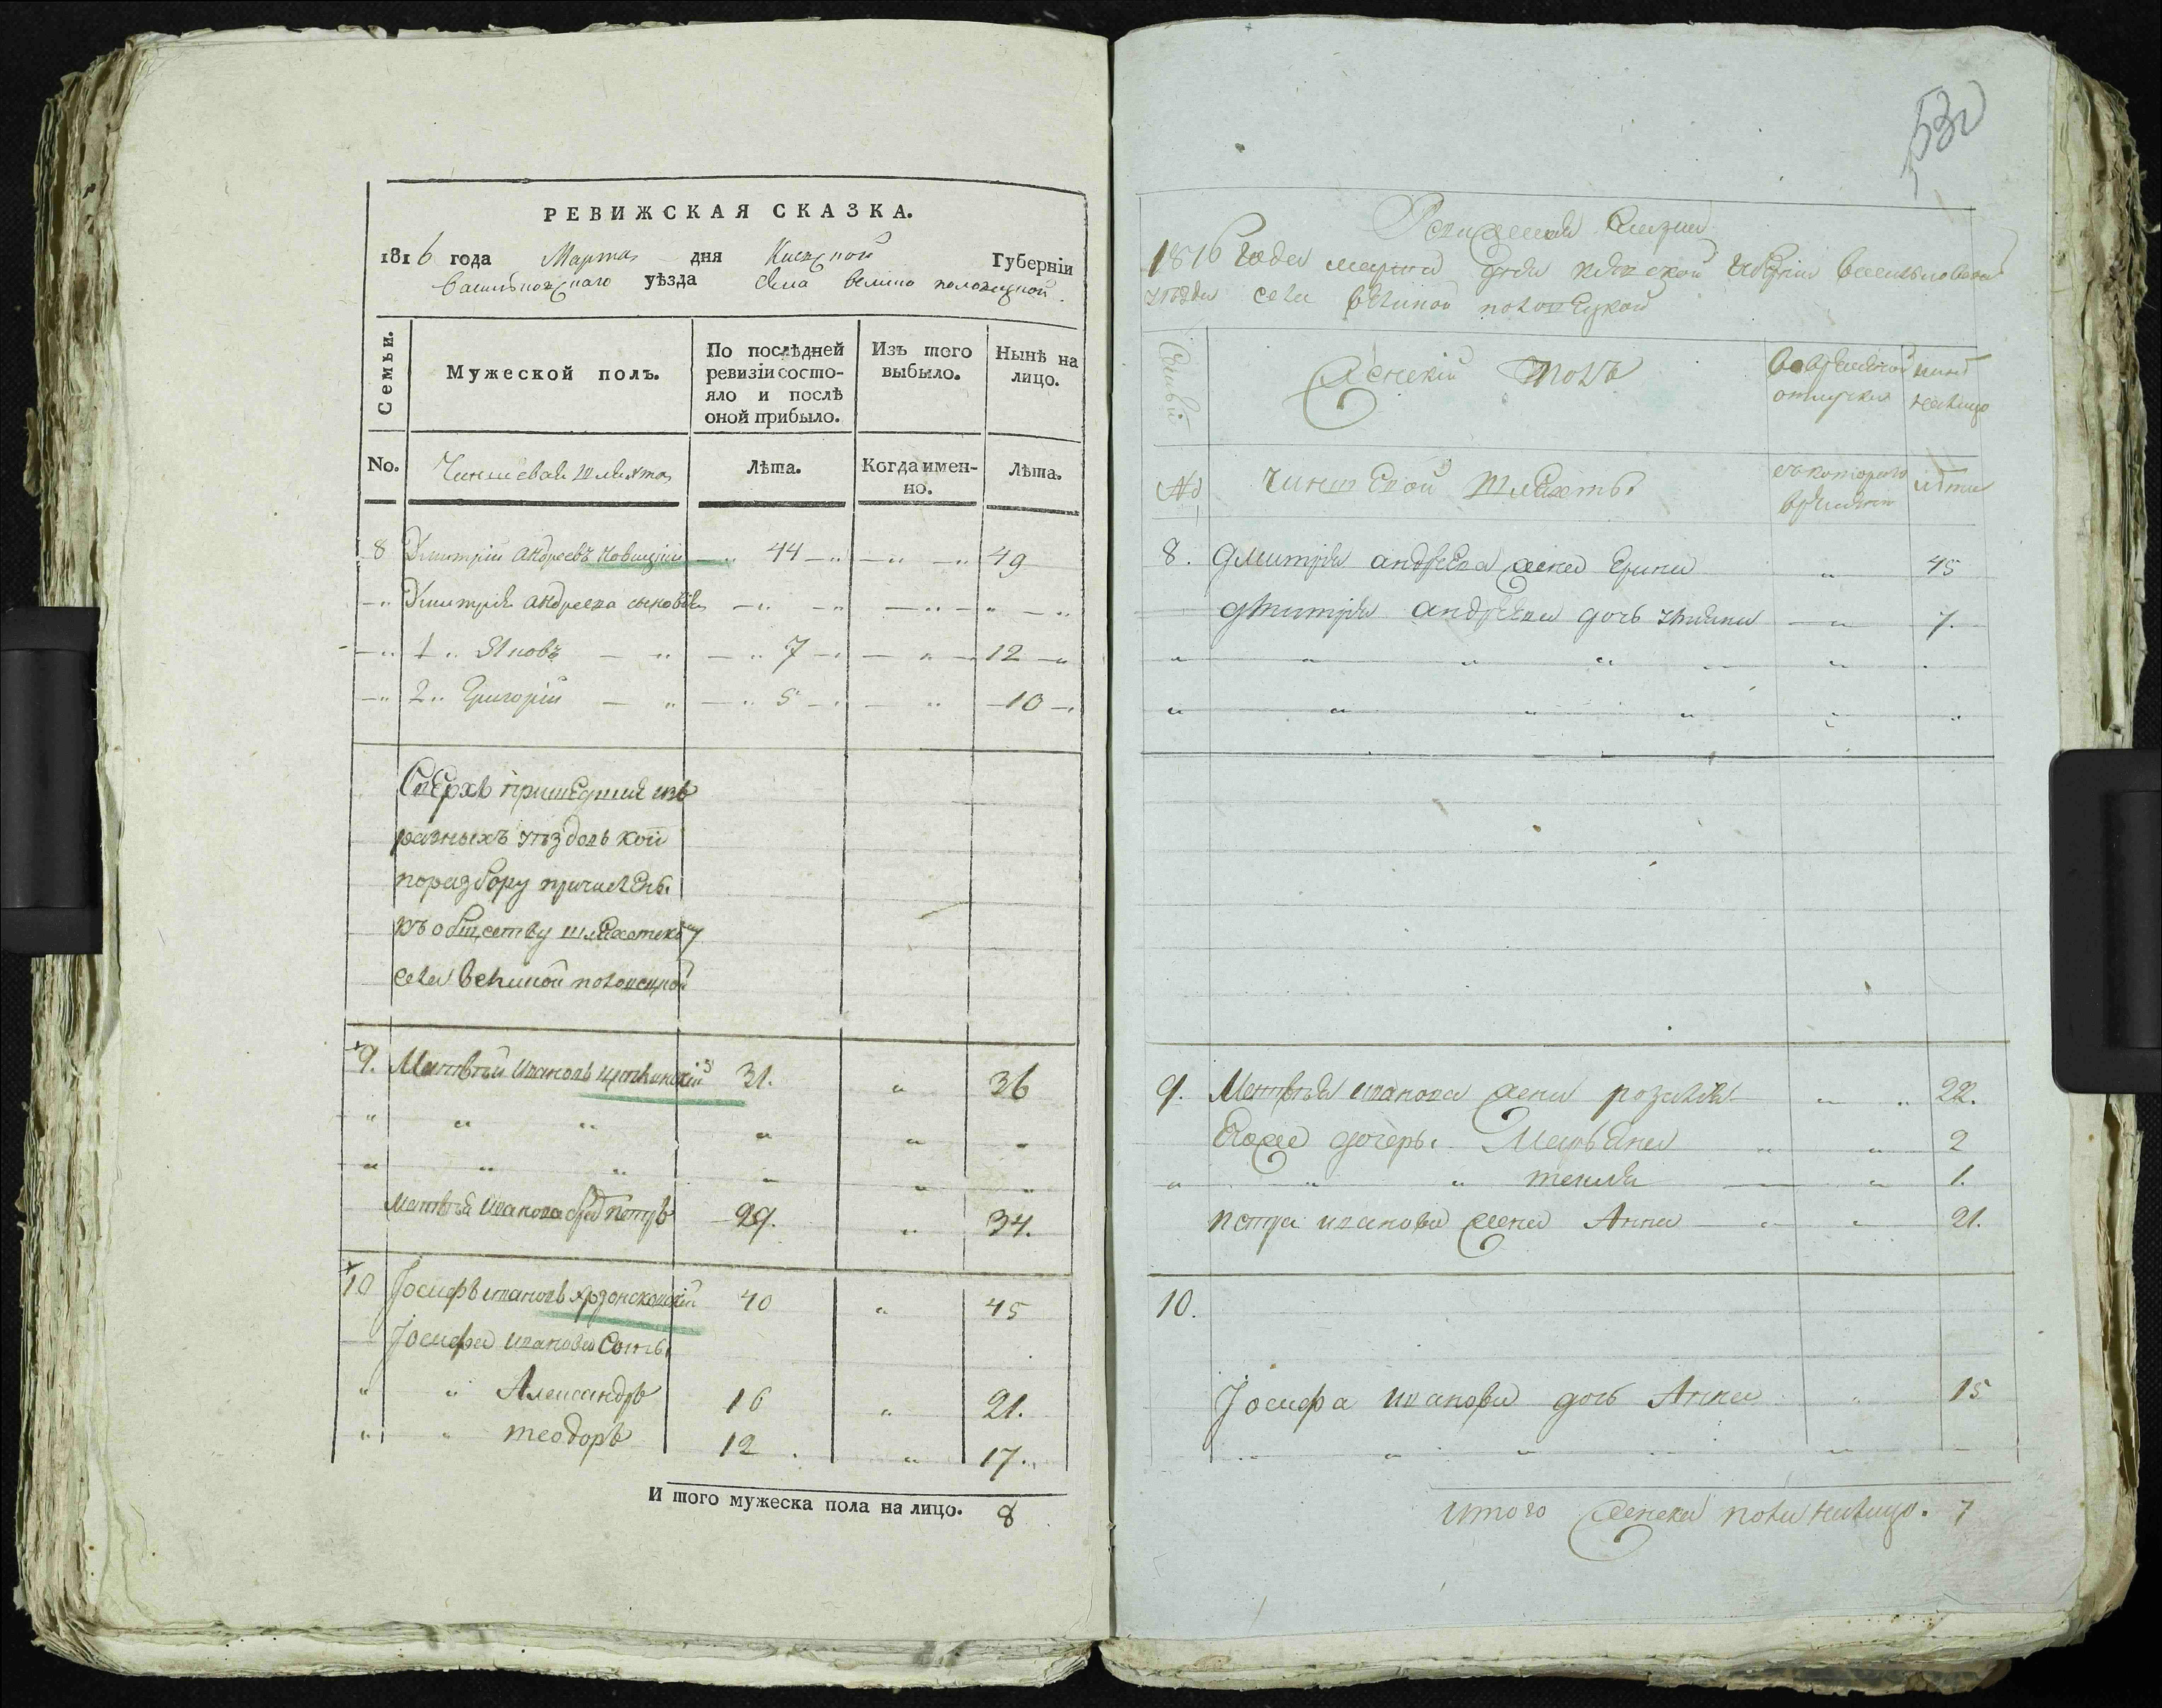 РЕВИЖСКАЯ СКАЗКА.
1816 года Марта дня Киевской Губерніи
Васильковскаго уѣзда села велико половецкой
Семьи. Мужеской полъ. По послѣдней ревизіи состояло и послѣ оной прибыло. Изъ того выбыло. Нынѣ на лицо.
No. Чиншевая шляхта Лѣта. Когда именно. Лѣта.
8 Дмитрій андреевъ новицкій 44 " 49
" Дмитрія андреева сыновья " " "
" 1 " Яковъ " 7 " 12
" 2 " Григорій " 5 " 10
Сверхъ пришедшия изъ
разныхъ уѣздовъ кои
поразбору причислены
къ обществу шляхетскому
села великой половецкой
9. Матвѣй ивановъ 31. " 36
" " " " " "
" " " " " "
Матвѣя иванова братъ петръ 29. " 34.
10 Іосифъ ивановъ 40 " 45
Іосифа иванова сыны
" " Александръ 16 " 21.
" " теодоръ 12 " 17.
И того мужеска пола на лицо. 8
532
Ревижская сказка
1816 года марта дня киевской губерніи васильковскаго
уѣзда села великой половецкой
Семьи Женскій полъ вовременной отлучки нынѣ налицо
No чиншевой шляхты съкотораго времени лѣта
8. дмитрія андреева жена 45
дмитрія андреева дочь 7.
" " " " " "
" " " " " "
9. Матвѣя иванова жена розалія " " 22.
Егоже дочеры Марьяна " " 2
" " " текля " 1.
петра иванова жена Анна " " 21.
10.
Іосифа иванова дочь Анна " 15
" " " " "
итого женска пола налицо. 7